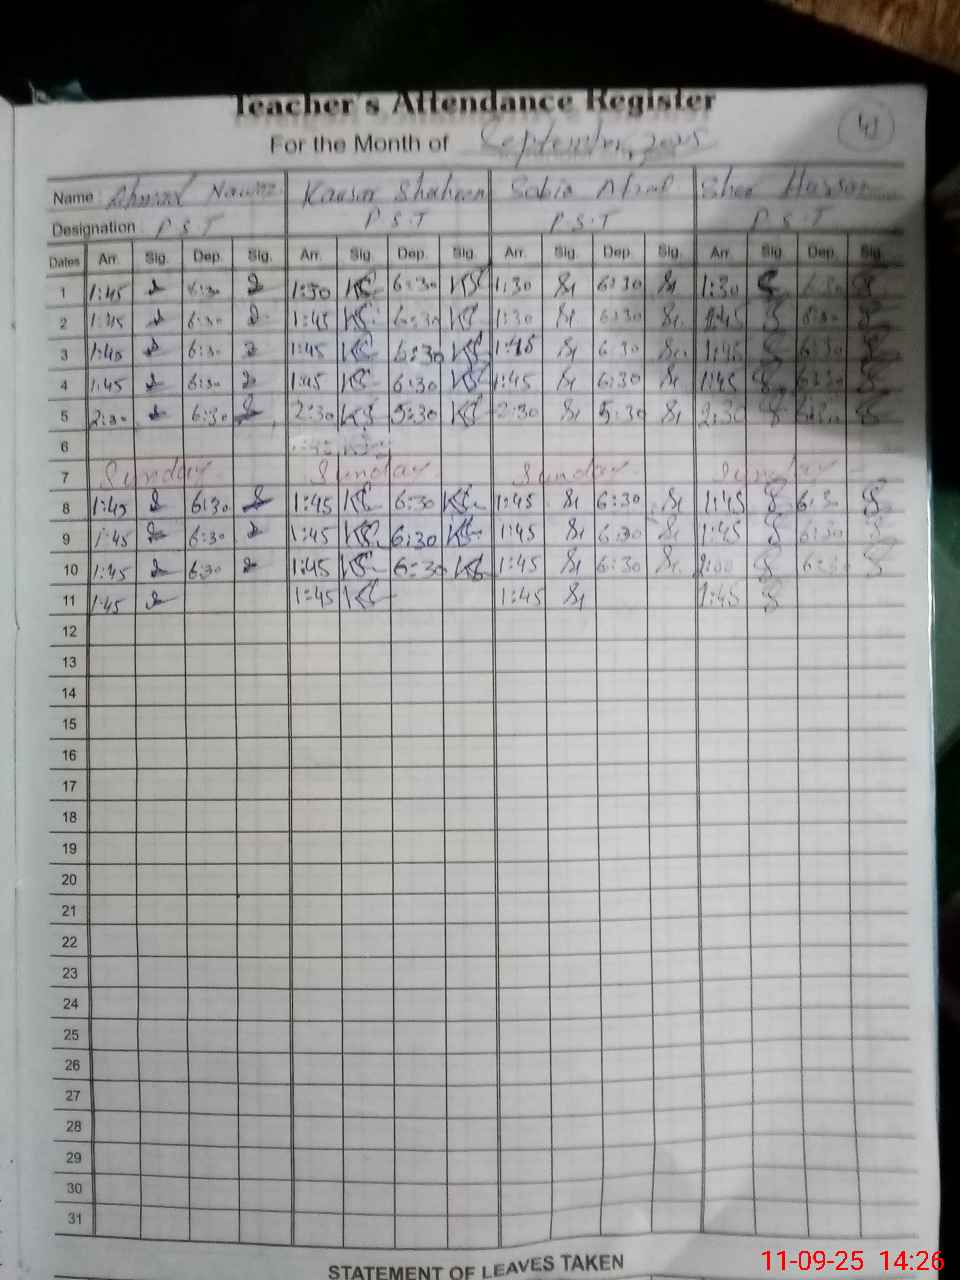 Teacher's Attendance Register
41
For the Month of September, 2025
Name Ahmad Nawaz Kausar Shaheen Sabia Afzal Sher Hassan
Designation P.S.T P.S.T P.S.T P.S.T
Dates Arr. Sig. Dep. Sig. Arr. Sig. Dep. Sig. Arr. Sig. Dep. Sig. Arr. Sig. Dep. Sig.
1 1:45 6:30 1:30 KS 6:30 KS 1:30 6:30 1:30 6:30
2 1:45 6:30 1:45 KS 6:30 KS 1:30 6:30 1:45 6:30
3 1:45 6:30 1:45 KS 6:30 KS 1:45 6:30 1:45 6:30
4 1:45 6:30 1:45 KS 6:30 KS 1:45 6:30 1:45 6:30
5 2:30 6:30 2:30 KS 5:30 KS 2:30 5:30 2:30
6
7 Sunday Sunday Sunday Sunday
8 1:45 6:30 1:45 KS 6:30 KS 1:45 6:30 1:45 6:30
9 1:45 6:30 1:45 KS 6:30 KS 1:45 6:30 1:45 6:30
10 1:45 6:30 1:45 KS 6:30 KS 1:45 6:30 6:30
11 1:45 1:45 KS 1:45 1:45
12
13
14
15
16
17
18
19
20
21
22
23
24
25
26
27
28
29
30
31
STATEMENT OF LEAVES TAKEN
11-09-25 14:26